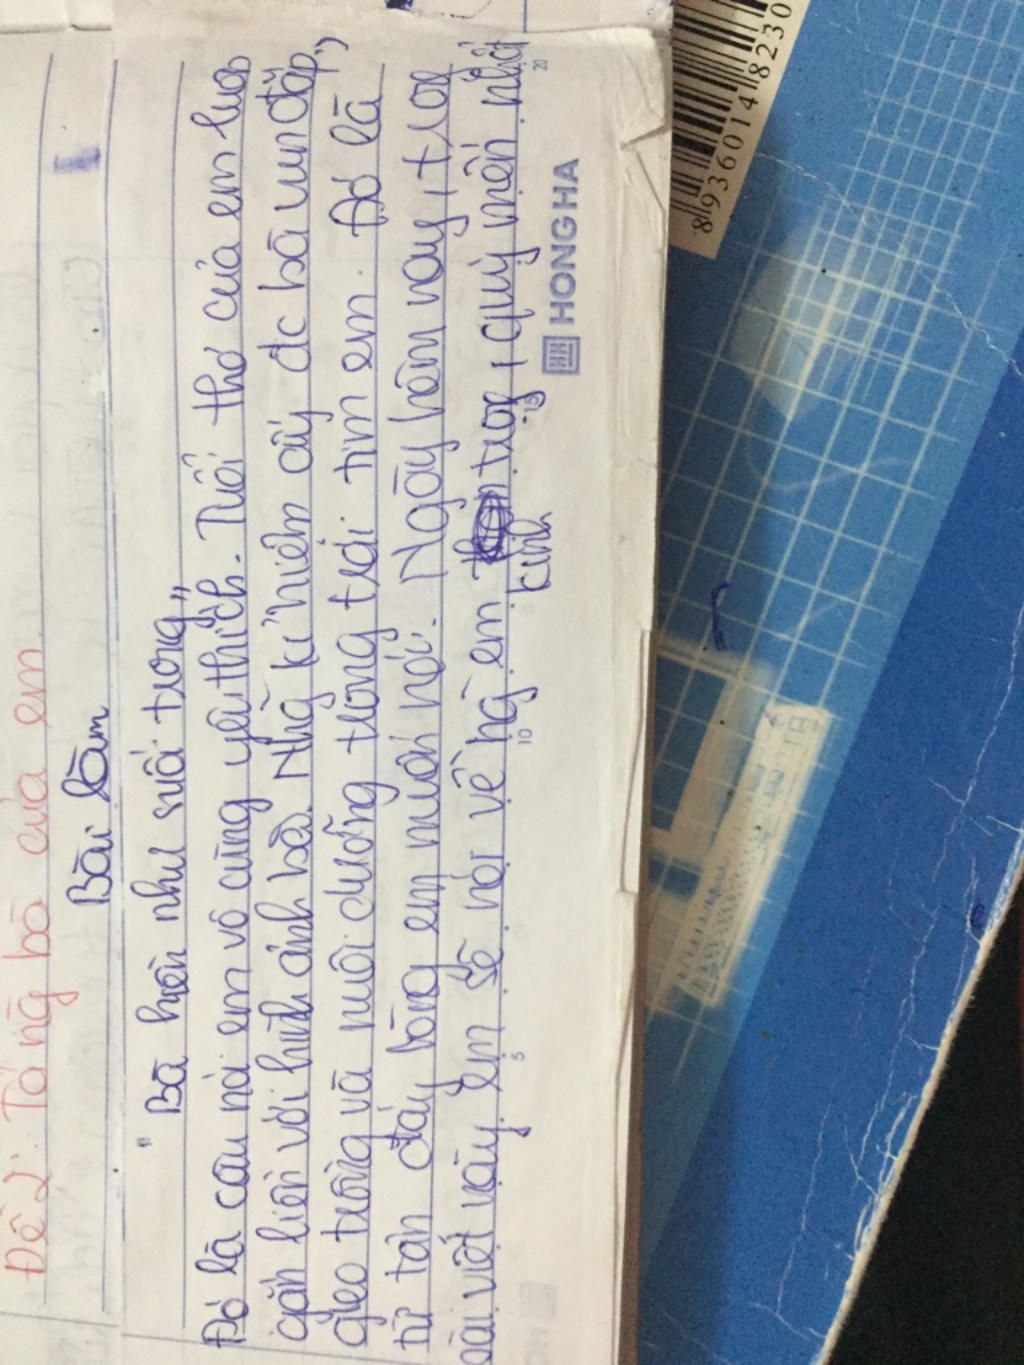 Đề 2: Tả ng bà của em.
Bài làm
" Bà hiền như suối trong"
Đó là câu nói em vô cùng yêu thích. Tuổi thơ của em luôn
gắn liền với hình ảnh bà. Nhg kỉ niệm ấy đc bà vun đắp,
gieo trồng và nuôi dưỡng trong trái tim em. Đó là
từ tận đáy lòng em muốn nói. Ngày hôm nay, trog
bài viết này em sẽ nói về ng em kính trog, quý mến nhất
HONG HA
5
10
15
20
8936014 8230